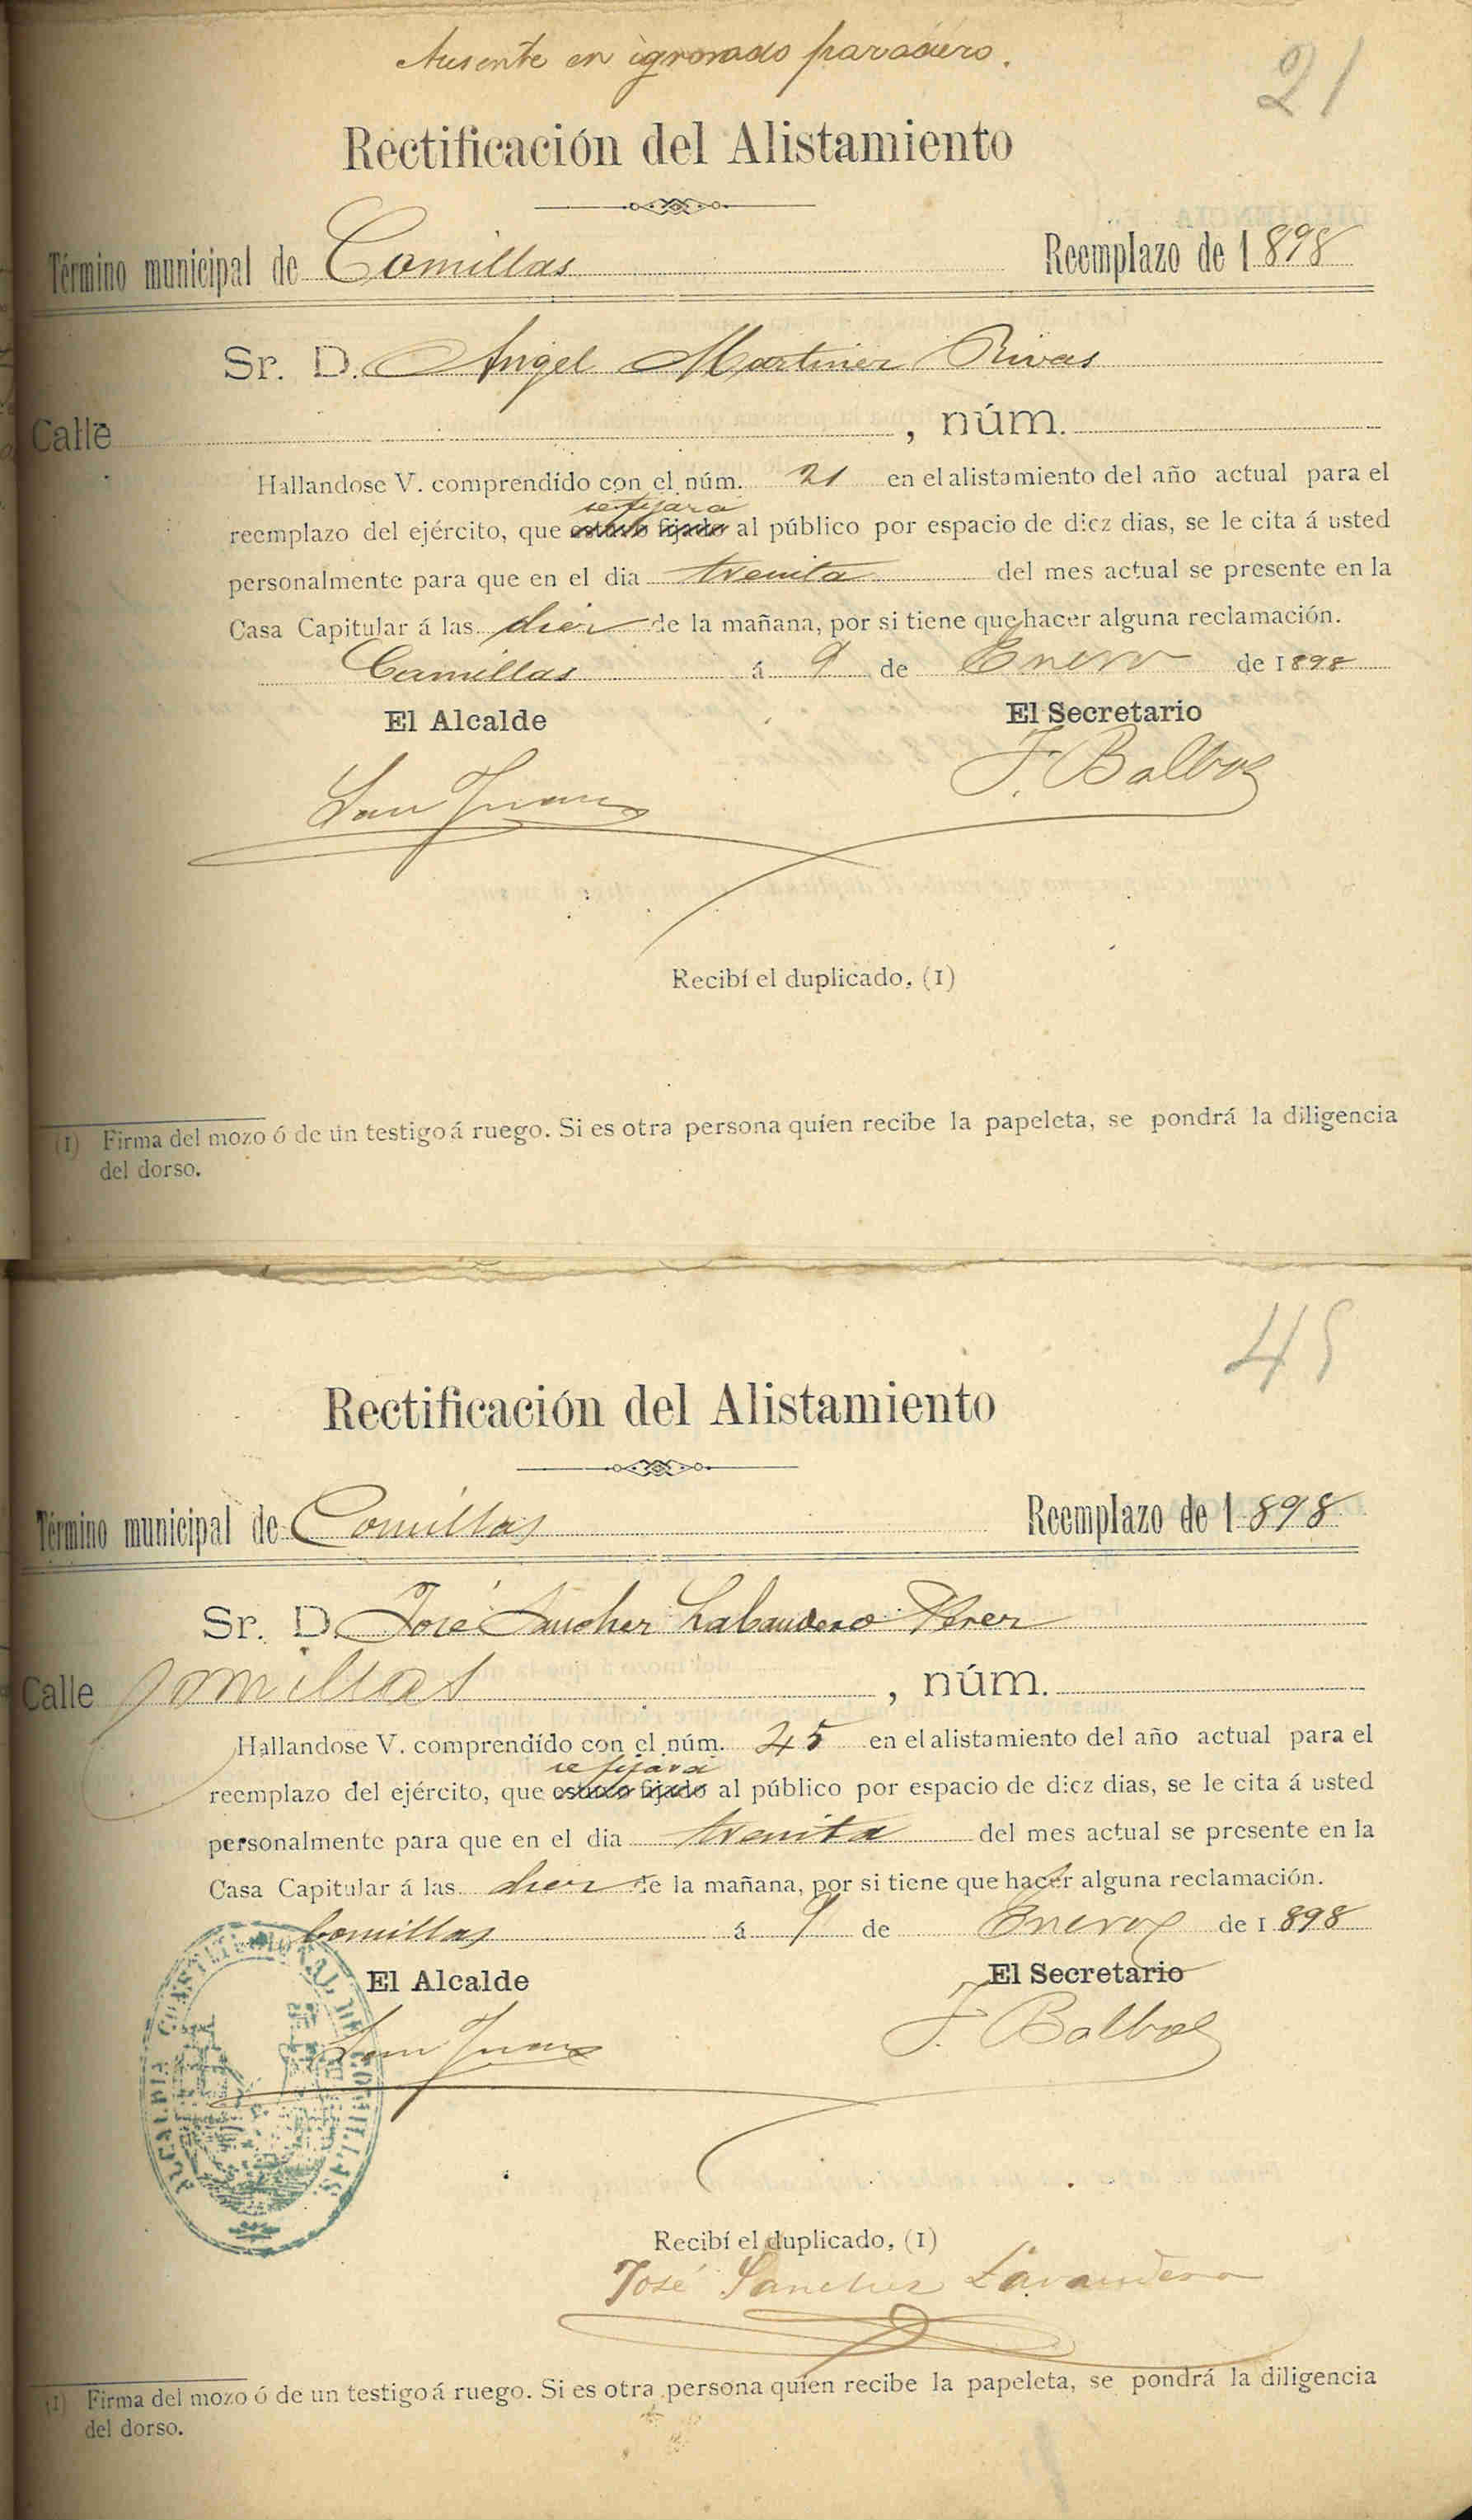 Ausente en ignorado paradero.
21
Rectificación del Alistamiento
Término municipal de Comillas Reemplazo de 1898
Sr. D. Angel Martinez Rivas
Calle , núm.
Hallandose V. comprendído con el núm. 21 en el alistamiento del año actual para el
se fijara
reemplazo del ejército, que estado fijado al público por espacio de diez dias, se le cita á usted
personalmente para que en el dia treinta del mes actual se presente en la
Casa Capitular á las diez de la mañana, por si tiene que hacer alguna reclamación.
Comillas á 9 de Enero de 1898
El Alcalde El Secretario
San Juan F. Balboa
Recibí el duplicado, (1)
(1) Firma del mozo ó de un testigo á ruego. Si es otra persona quíen recibe la papeleta, se pondrá la diligencia
del dorso.
45
Rectificación del Alistamiento
Término municipal de Comillas Reemplazo de 1898
Sr. D. José Sanchez Labandero Perez
Calle Comillas , núm.
Hallandose V. comprendído con el núm. 45 en el alistamiento del año actual para el
se fijará
reemplazo del ejército, que estado fijado al público por espacio de diez dias, se le cita á usted
personalmente para que en el dia treinta del mes actual se presente en la
Casa Capitular á las diez de la mañana, por si tiene que hacer alguna reclamación.
Comillas á 9 de Enero de 1898
El Alcalde El Secretario
San Juan F. Balboa
ALCALDIA CONSTITUCIONAL DE COMILLAS
Recibí el duplicado, (1)
José Sanchez Lavandero
(1) Firma del mozo ó de un testigo á ruego. Si es otra persona quíen recibe la papeleta, se pondrá la diligencia
del dorso.